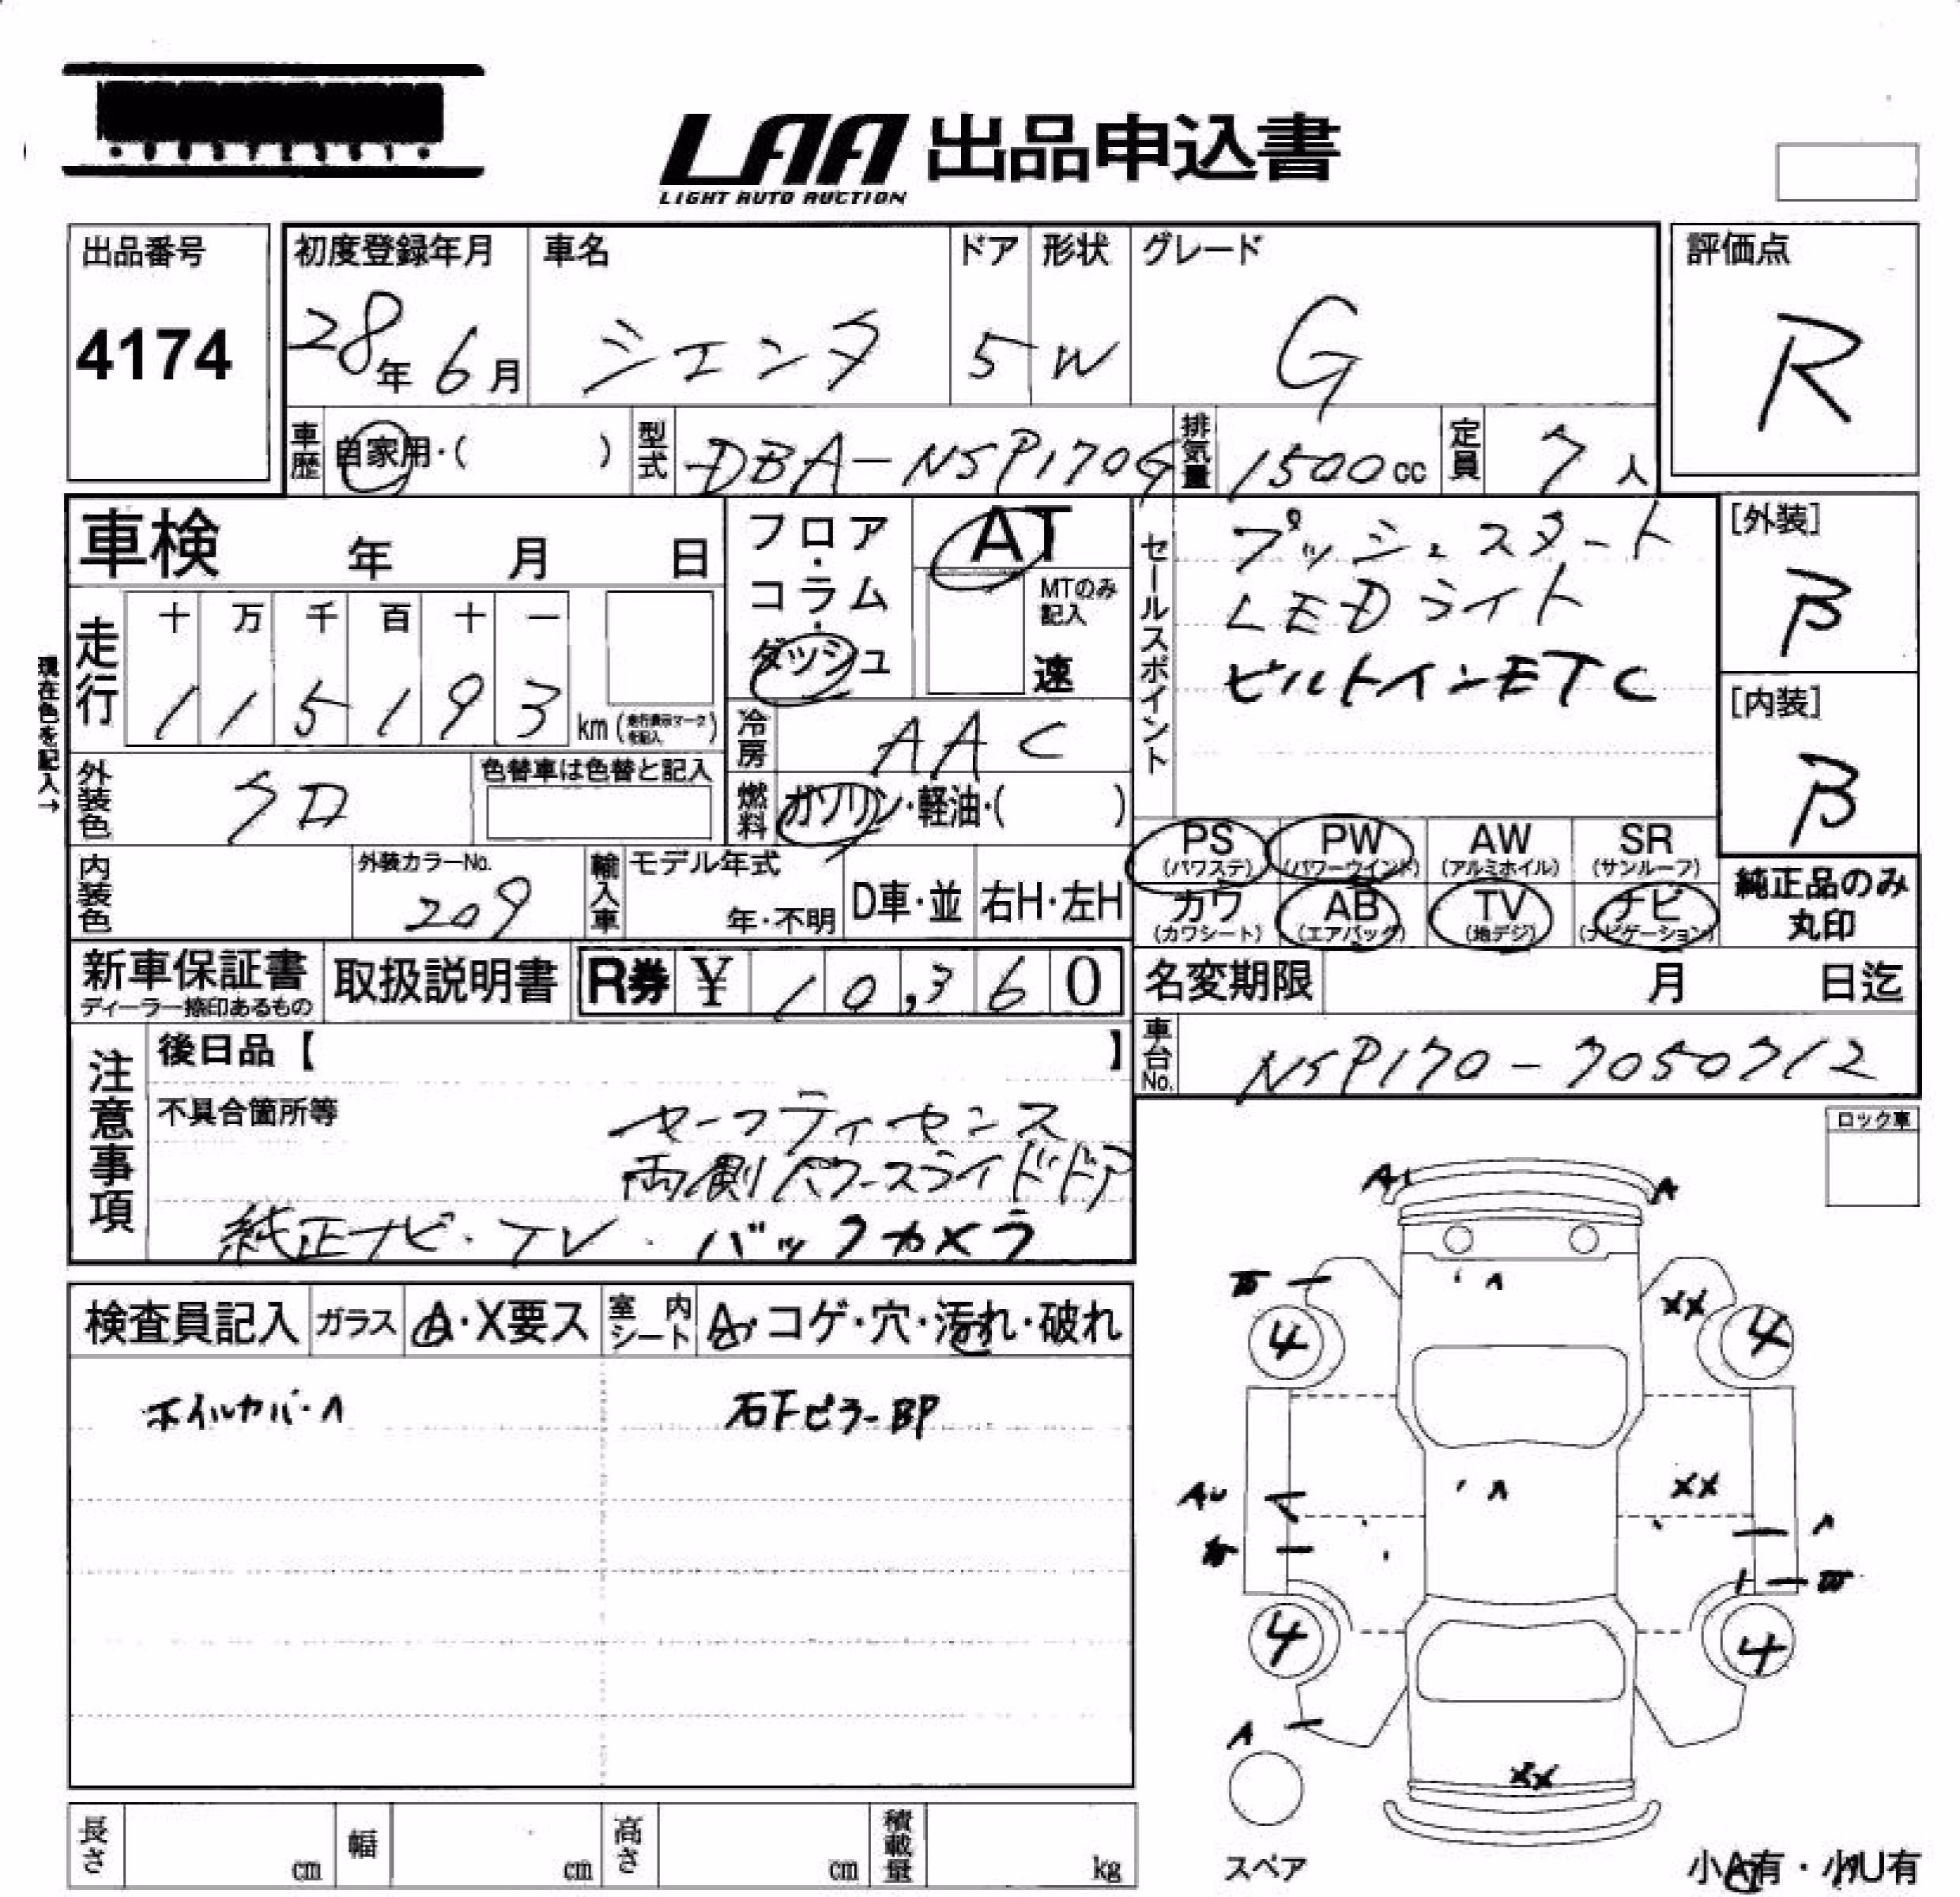 LAA 出品申込書
LIGHT AUTO AUCTION
出品番号
4174
初度登録年月
28年 6月
車名
シエンタ
ドア
5
形状
W
グレード
G
評価点
R
車歴
自家用・( )
型式
DBA-NSP170G
排気量
1500cc
定員
7人
車検 年 月 日
フロア・コラム・ダッシュ
AT
MTのみ記入
速
セールスポイント
プッシュスタート
LEDライト
ビルトインETC
[外装]
B
[内装]
B
現在色を記入→
走行
十 万 千 百 十 一
1 1 5 1 9 3 km(走行表示マークを記入)
冷房
AAC
外装色
クロ
色替車は色替と記入
燃料
ガソリン・軽油・( )
PS (パワステ)
PW (パワーウインド)
AW (アルミホイル)
SR (サンルーフ)
カワ (カワシート)
AB (エアバック)
TV (地デジ)
ナビ (ナビゲーション)
純正品のみ
丸印
内装色
外装カラーNo.
209
輸入車
モデル年式
年・不明
D車・並
右H・左H
新車保証書
ディーラー捺印あるもの
取扱説明書
R券 ¥ 10,360
名変期限 月 日迄
車台No.
NSP170-7050712
注意事項
後日品【 】
不具合箇所等
セーフティセンス
両側パワースライドドア
純正ナビ・TV・バックカメラ
ロック車
検査員記入
ガラス
A・X要ス
室内シート
A・コゲ・穴・汚れ・破れ
ホイルカバーA
右Fピラー BP
A A
A
XX
4 4
A XX
A
A
4 4
A
XX
スペア
小A有・小U有
長さ cm
幅 cm
高さ cm
積載量 kg